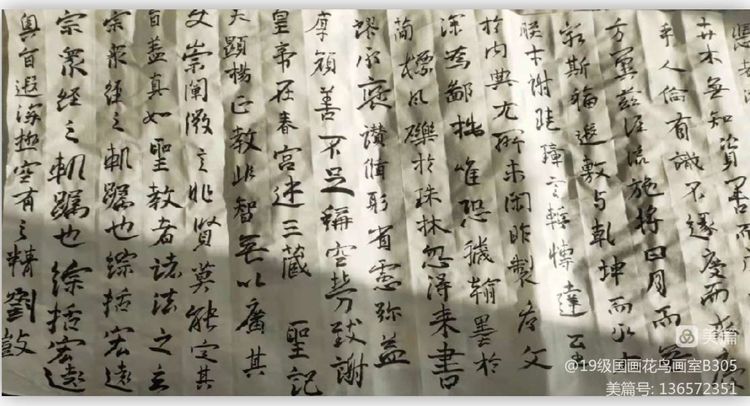 卉木無知資善而成
乎人倫有識不緣慶而求慶
方冀茲經流施將日月而無
窮斯福遐敷与乾坤而永大
朕才謝珪璋言慚博達至
於内典尤所未閑昨製序文
深為鄙拙唯恐穢翰墨於
簡標瓦礫於珠林忽得来書
謬承褒讃循躬省慮弥益
厚顏善不足稱空勞致謝
皇帝在春宮述三藏 聖記
夫顯揚正教非智無以廣其
文崇闡微言非賢莫能定其
旨蓋真如聖教者諸法之玄
宗衆經之軌躅也綜括宏遠
宗衆經之軌躅也綜括宏遠
奧旨遐深極空有之精劉
美篇
@19级国画花鸟画室B305
美篇号: 136572351